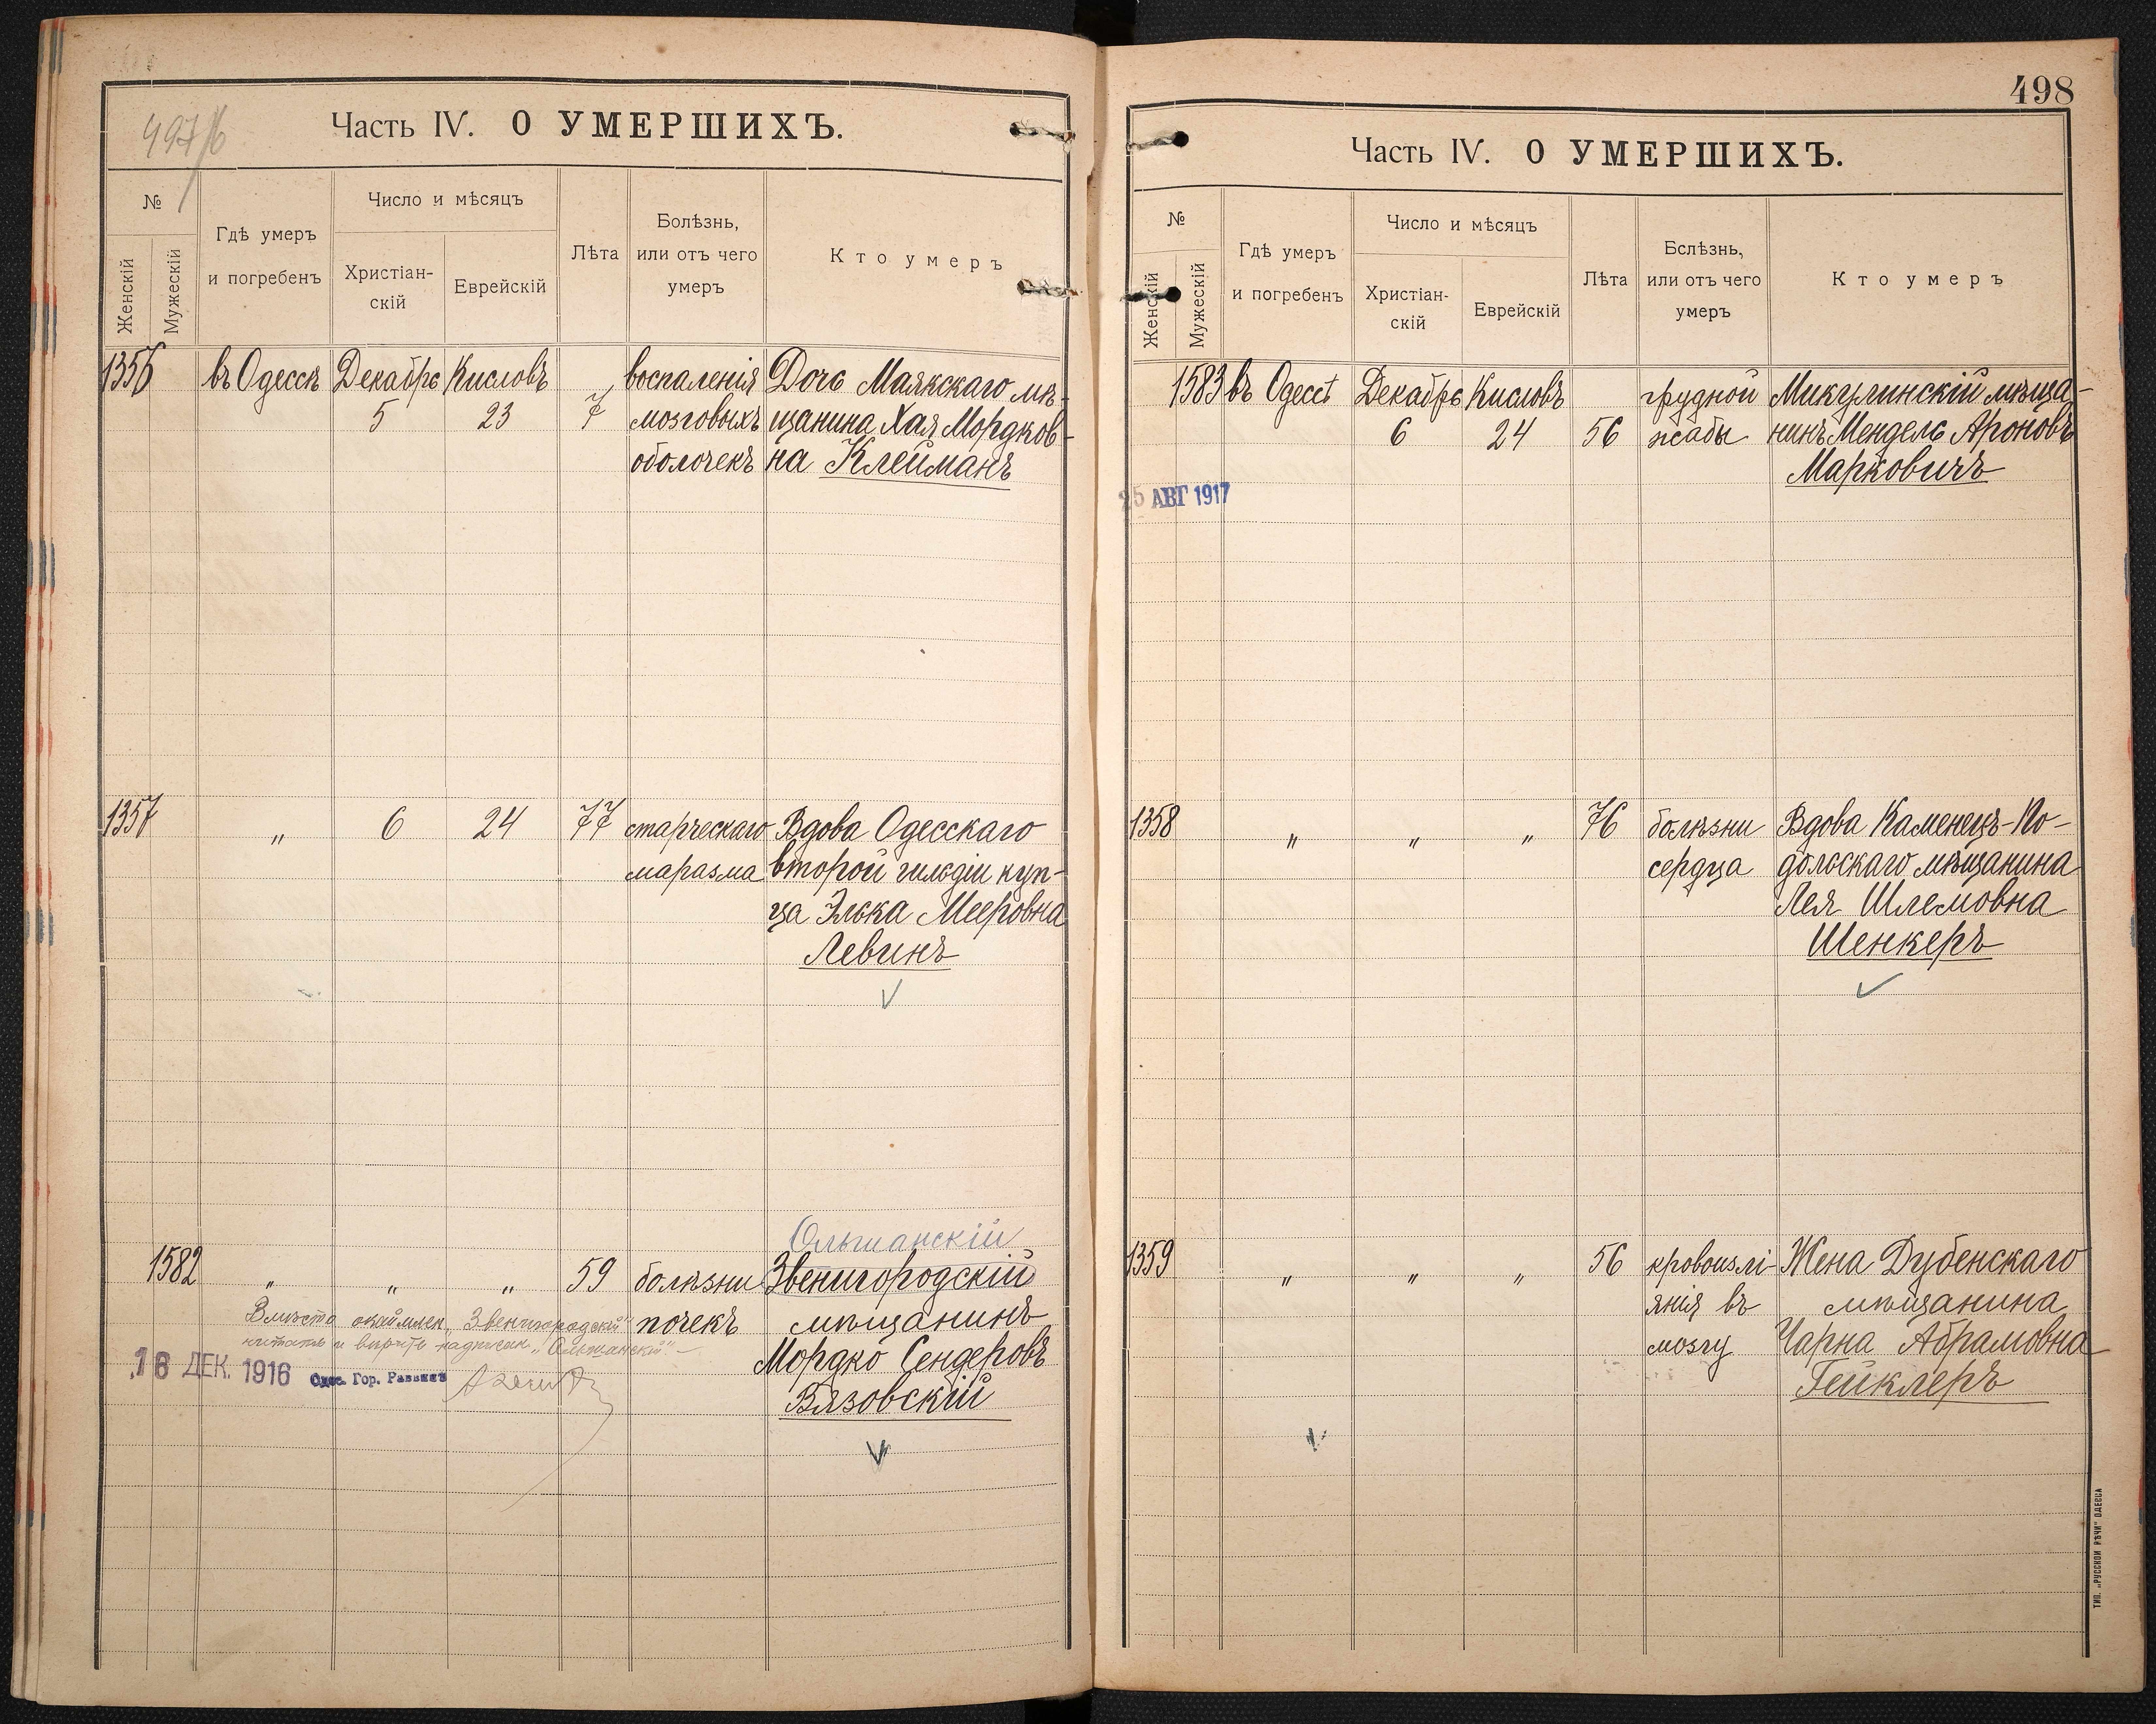 497/б
Часть IV. О УМЕРШИХЪ.
№
Женскій
Мужескій
Гдѣ умеръ
и погребенъ
Число и мѣсяцъ
Христіан-
скій
Еврейскій
Лѣта
Болѣзнь,
или отъ чего
умеръ
Кто умеръ
1356 въ Одессѣ Декабрь Кисловъ воспаленія Дочь Маякскаго мѣ-
5 23 7 мозговыхъ щанина Хая Мордков-
оболочекъ на Клейманъ
1357 " 6 24 77 старческаго Вдова Одесскаго
маразма второй гильдіи куп-
ца Элька Мееровна
Левинъ
Ольшанскій
1582 " " " 59 болѣзни Звенигородскій
почекъ мѣщанинъ
Мордко Сендеровъ
Вязовскій
Вмѣсто окаймлен. "Звенигородскій"
читать и вѣрить надписан. "Ольшанскій"
16 ДЕК. 1916 Одес. Гор. Раввинъ
498
Часть IV. О УМЕРШИХЪ.
№
Женскій
Мужескій
Гдѣ умеръ
и погребенъ
Число и мѣсяцъ
Христіан-
скій
Еврейскій
Лѣта
Бслѣзнь,
или отъ чего
умеръ
Кто умеръ
1583 въ Одессѣ Декабрь Кисловъ грудной Микулинскій мѣща-
6 24 56 жабы нинъ Мендель Ароновъ
Марковичъ
25 АВГ 1917
1358 " " " 76 болѣзни Вдова Каменецъ-По-
сердца дольскаго мѣщанина
Лея Шлемовна
Шенкеръ
1359 " " " 56 кровоизлі- Жена Дубенскаго
янія въ мѣщанина
мозгу Чарна Абрамовна
Гейклеръ
ТИП. „РУССКОЙ РѢЧИ" ОДЕССА